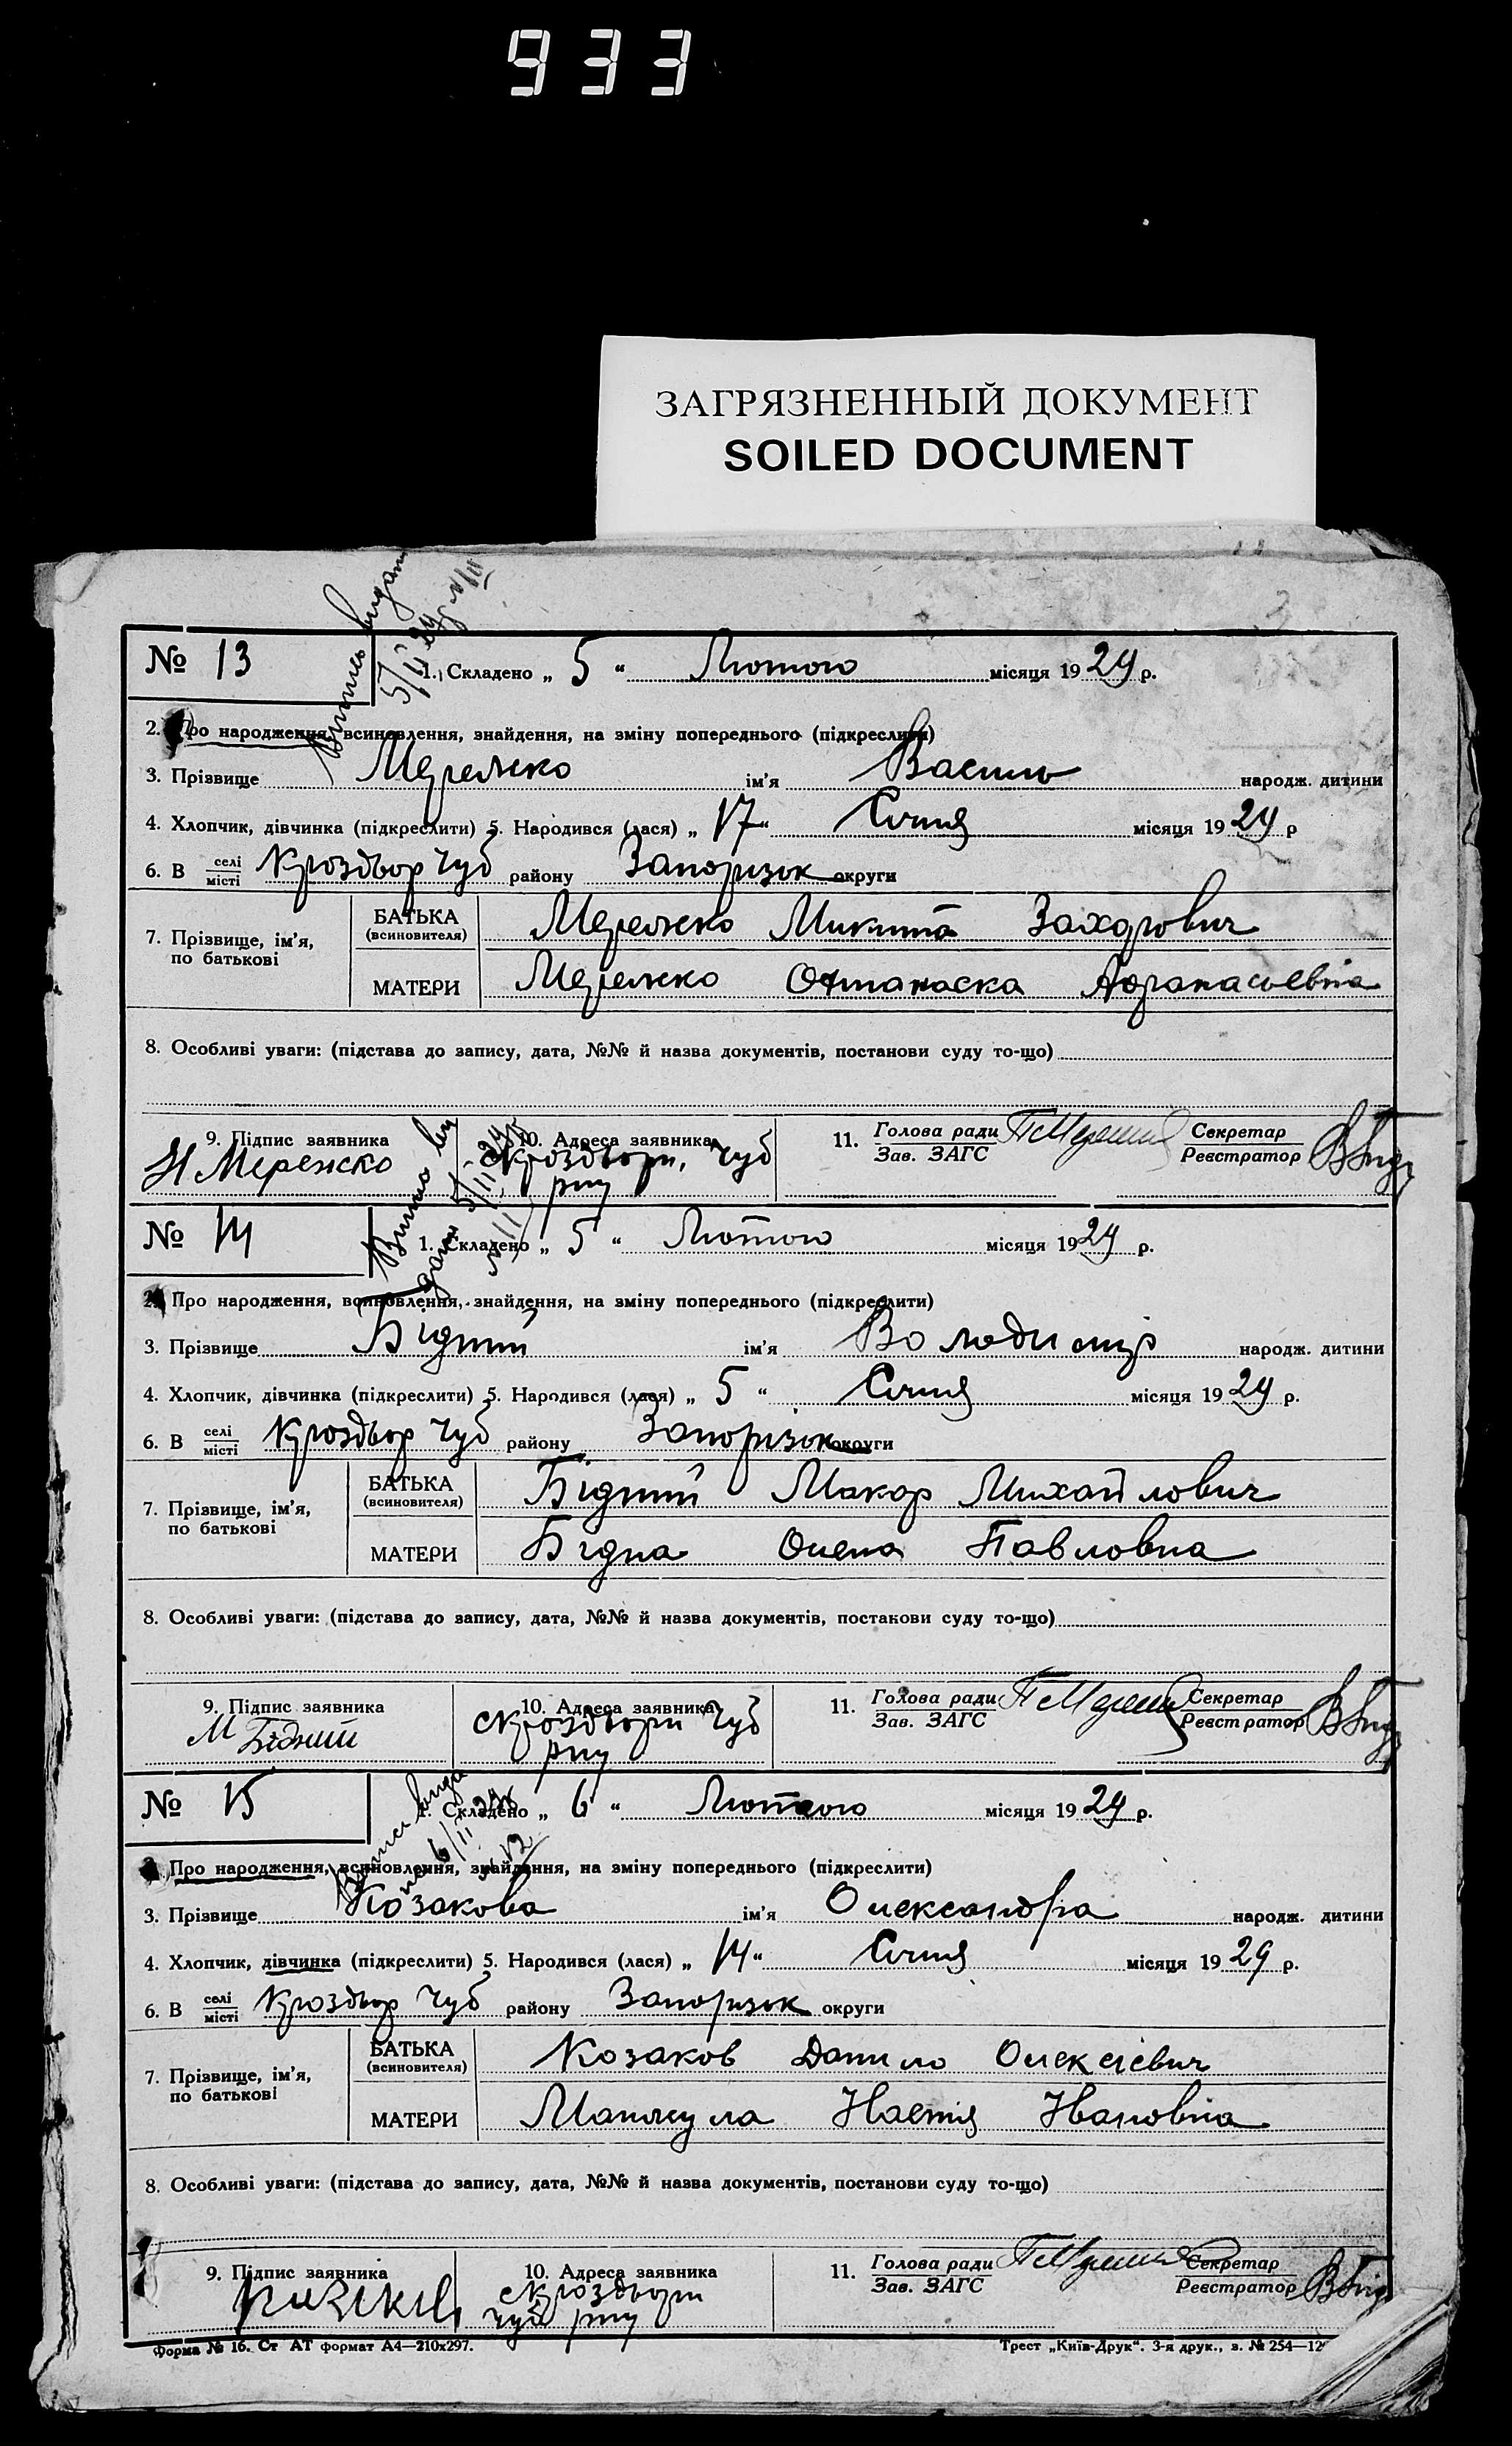 933
ЗАГРЯЗНЕННЫЙ ДОКУМЕНТ
SOILED DOCUMENT
№ 13
1. Складено „ 5 “ Лютого місяця 1929 р.
2. Про народження, всиновлення, знайдення, на зміну попереднього (підкреслити)
3. Прізвище Мережко ім'я Василь народж. дитини
4. Хлопчик, дівчинка (підкреслити) 5. Народився (лася) „ 17 “ Січня місяця 1929 р
6. В селі місті Кроздвор Чуб району Запорізок округи
7. Прізвище, ім'я, по батькові
БАТЬКА (всиновителя) Мережко Микита Захарович
МАТЕРИ Мережко Афанасьевна
8. Особливі уваги: (підстава до запису, дата, №№ й назва документів, постанови суду то-що)
9. Підпис заявника 10. Адреса заявника 11. Голова ради Секретар
Зав. ЗАГС Реєстратор
Н Мережко Чуб
рну
№ 14
1. Складено „ 5 “ Лютого місяця 1929 р.
2. Про народження, всиновлення, знайдення, на зміну попереднього (підкреслити)
3. Прізвище Бідний ім'я Володимір народж. дитини
4. Хлопчик, дівчинка (підкреслити) 5. Народився (лася) „ 5 “ Січня місяця 1929 р.
6. В селі місті Кроздвор Чуб району Запорізок округи
7. Прізвище, ім'я, по батькові
БАТЬКА (всиновителя) Бідний Макар Михайлович
МАТЕРИ Бідна Олена Павловна
8. Особливі уваги: (підстава до запису, дата, №№ й назва документів, постанови суду то-що)
9. Підпис заявника 10. Адреса заявника 11. Голова ради Секретар
Зав. ЗАГС Реєстратор
М Бідний Чуб
рну
№ 15
1. Складено „ 6 “ Лютого місяця 1929 р.
2. Про народження, всиновлення, знайдення, на зміну попереднього (підкреслити)
3. Прізвище Козакова ім'я Олександра народж. дитини
4. Хлопчик, дівчинка (підкреслити) 5. Народився (лася) „ 14 “ Січня місяця 1929 р.
6. В селі місті Кроздвор Чуб району Запорізок округи
7. Прізвище, ім'я, по батькові
БАТЬКА (всиновителя) Козаков Данило Олексієвич
МАТЕРИ Манжула Настя Івановна
8. Особливі уваги: (підстава до запису, дата, №№ й назва документів, постанови суду то-що)
9. Підпис заявника 10. Адреса заявника 11. Голова ради Секретар
Зав. ЗАГС Реєстратор
Чуб рну
Форма № 16. Ст АТ формат А4—210х297. Трест „Київ-Друк“. 3-я друк., з. № 254—12